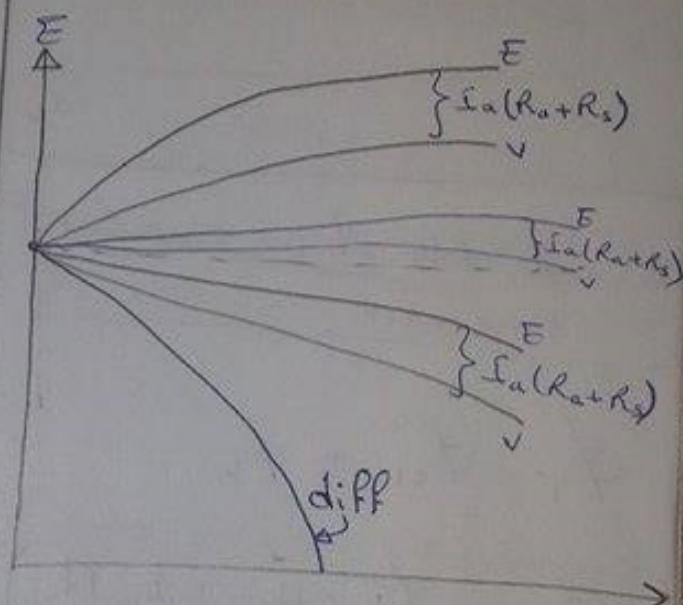 E
E
Ia(Ra+Rs)
V
E
Ia(Ra+Rs)
V
E
Ia(Ra+Rs)
V
diff